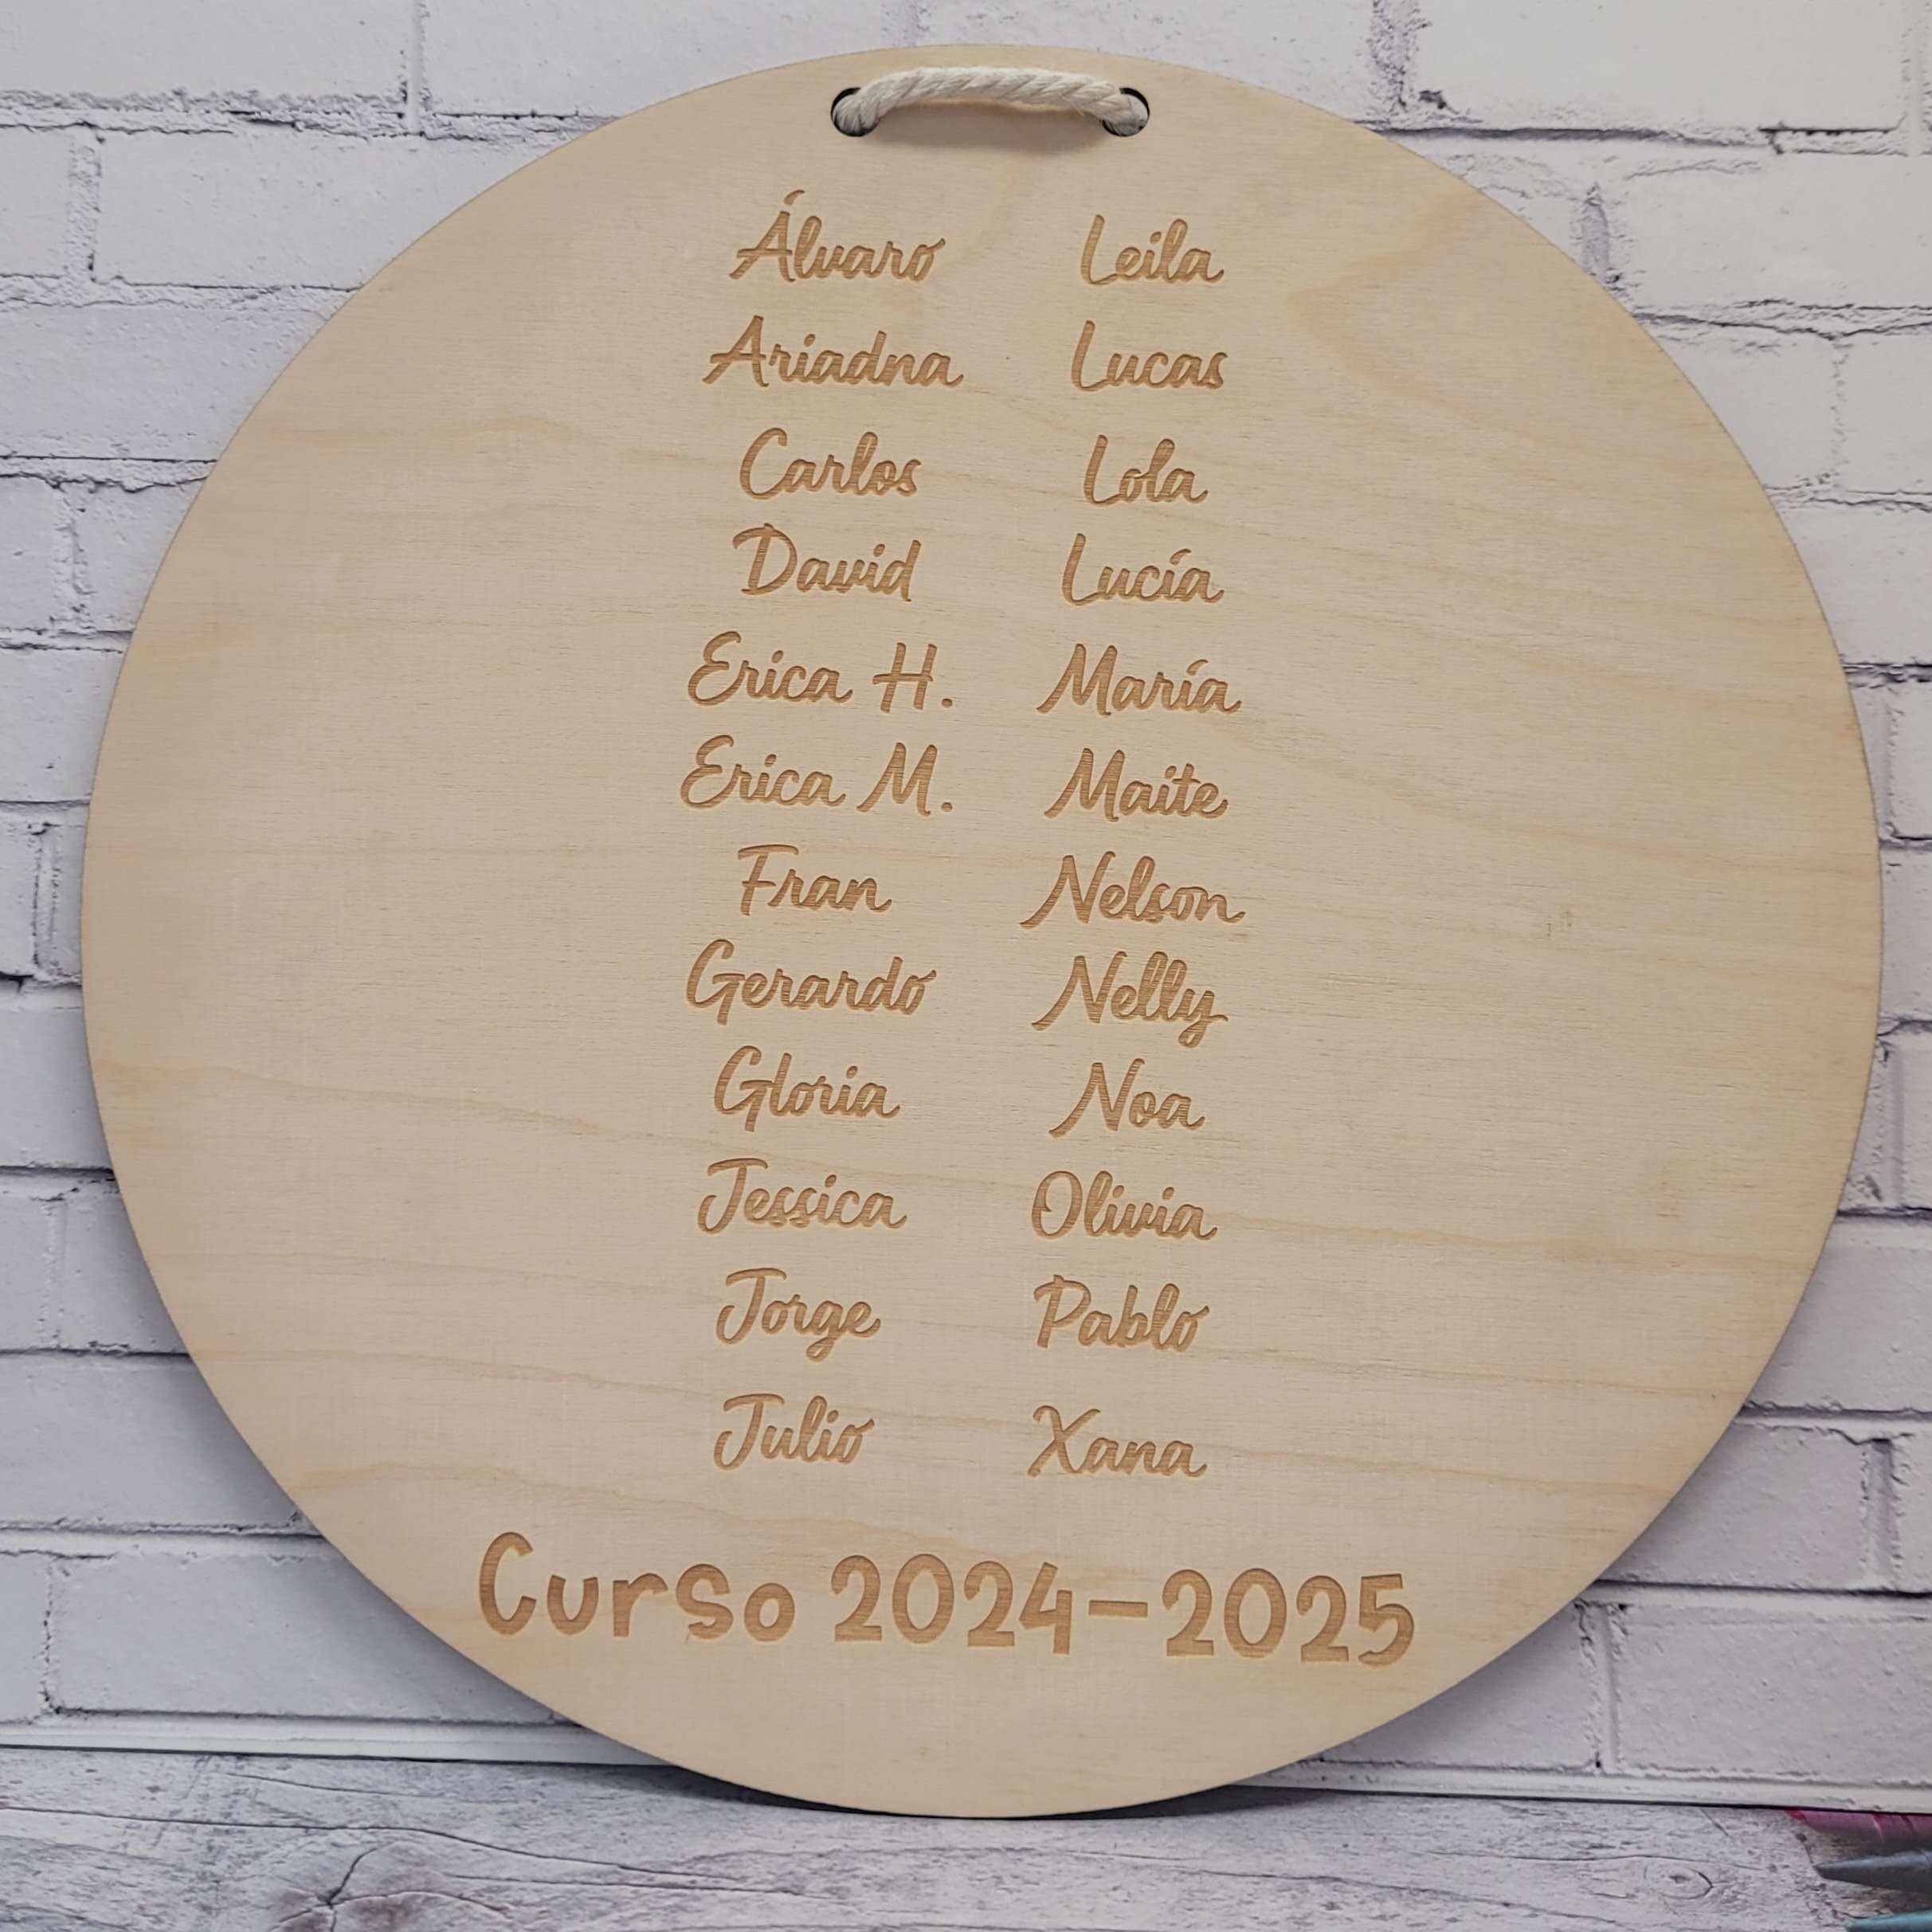 Álvaro Leila
Ariadna Lucas
Carlos Lola
David Lucía
Erica H. María
Erica M. Maite
Fran Nelson
Gerardo Nelly
Gloria Noa
Jessica Olivia
Jorge Pablo
Julio Xana
Curso 2024-2025